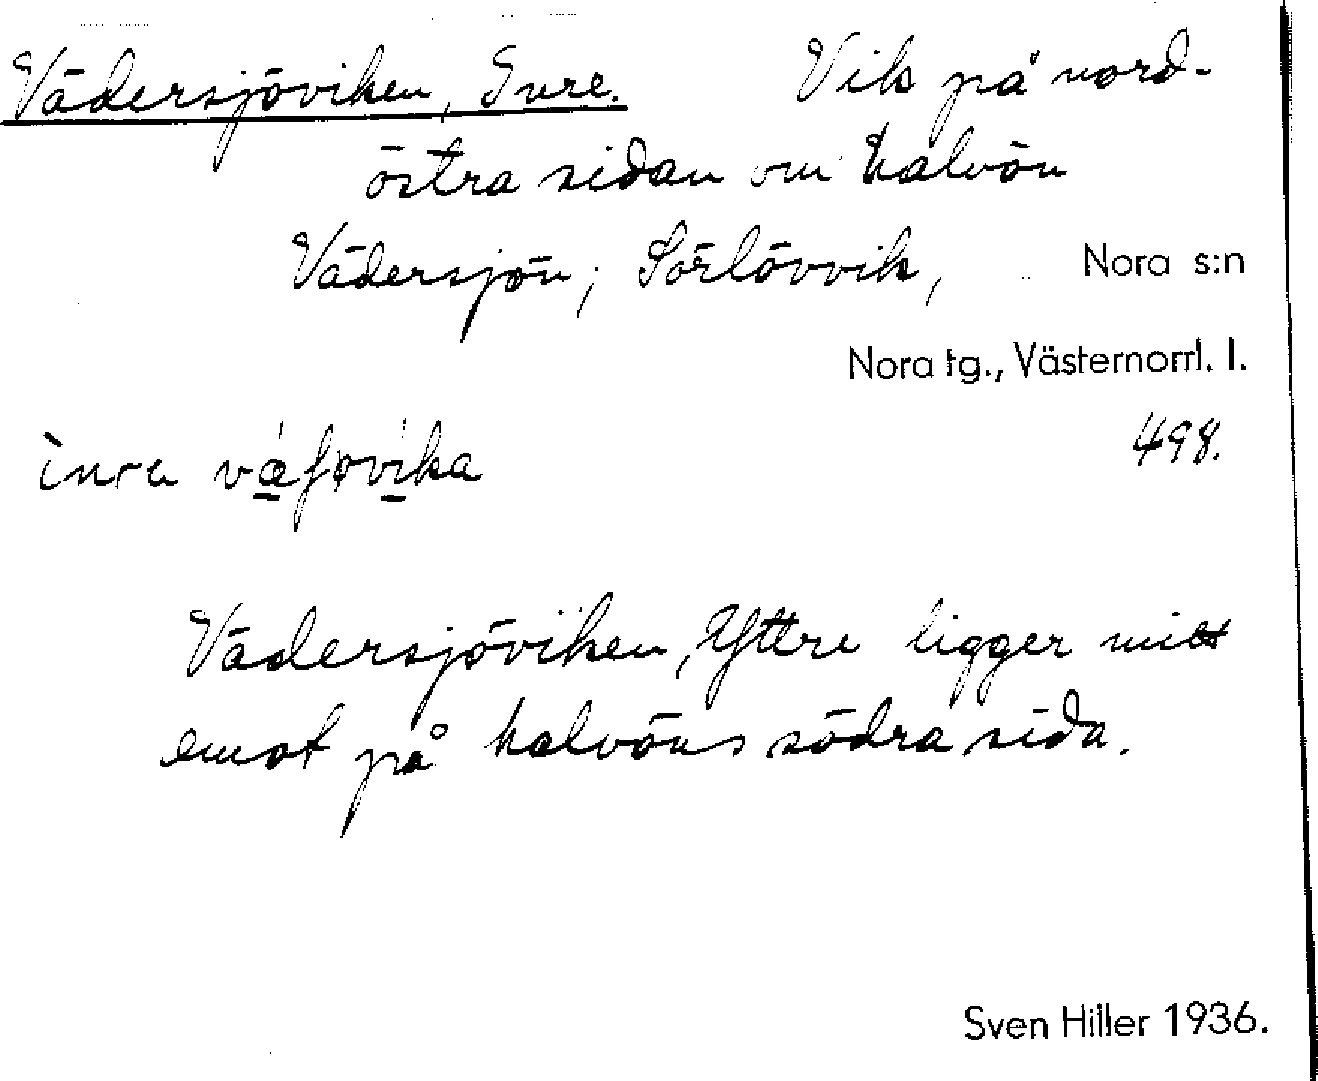 Vädersjöviken, Inre. Vik på nord-
östra sidan om halvön
Vädersjön; Sörlövvik, Nora s:n
Nora tg., Västernorrl. l.
498.
ìnra væʃøvika
Vädersjöviken, Yttre ligger mitt
emot på halvöns södra sida.
Sven Hiller 1936.